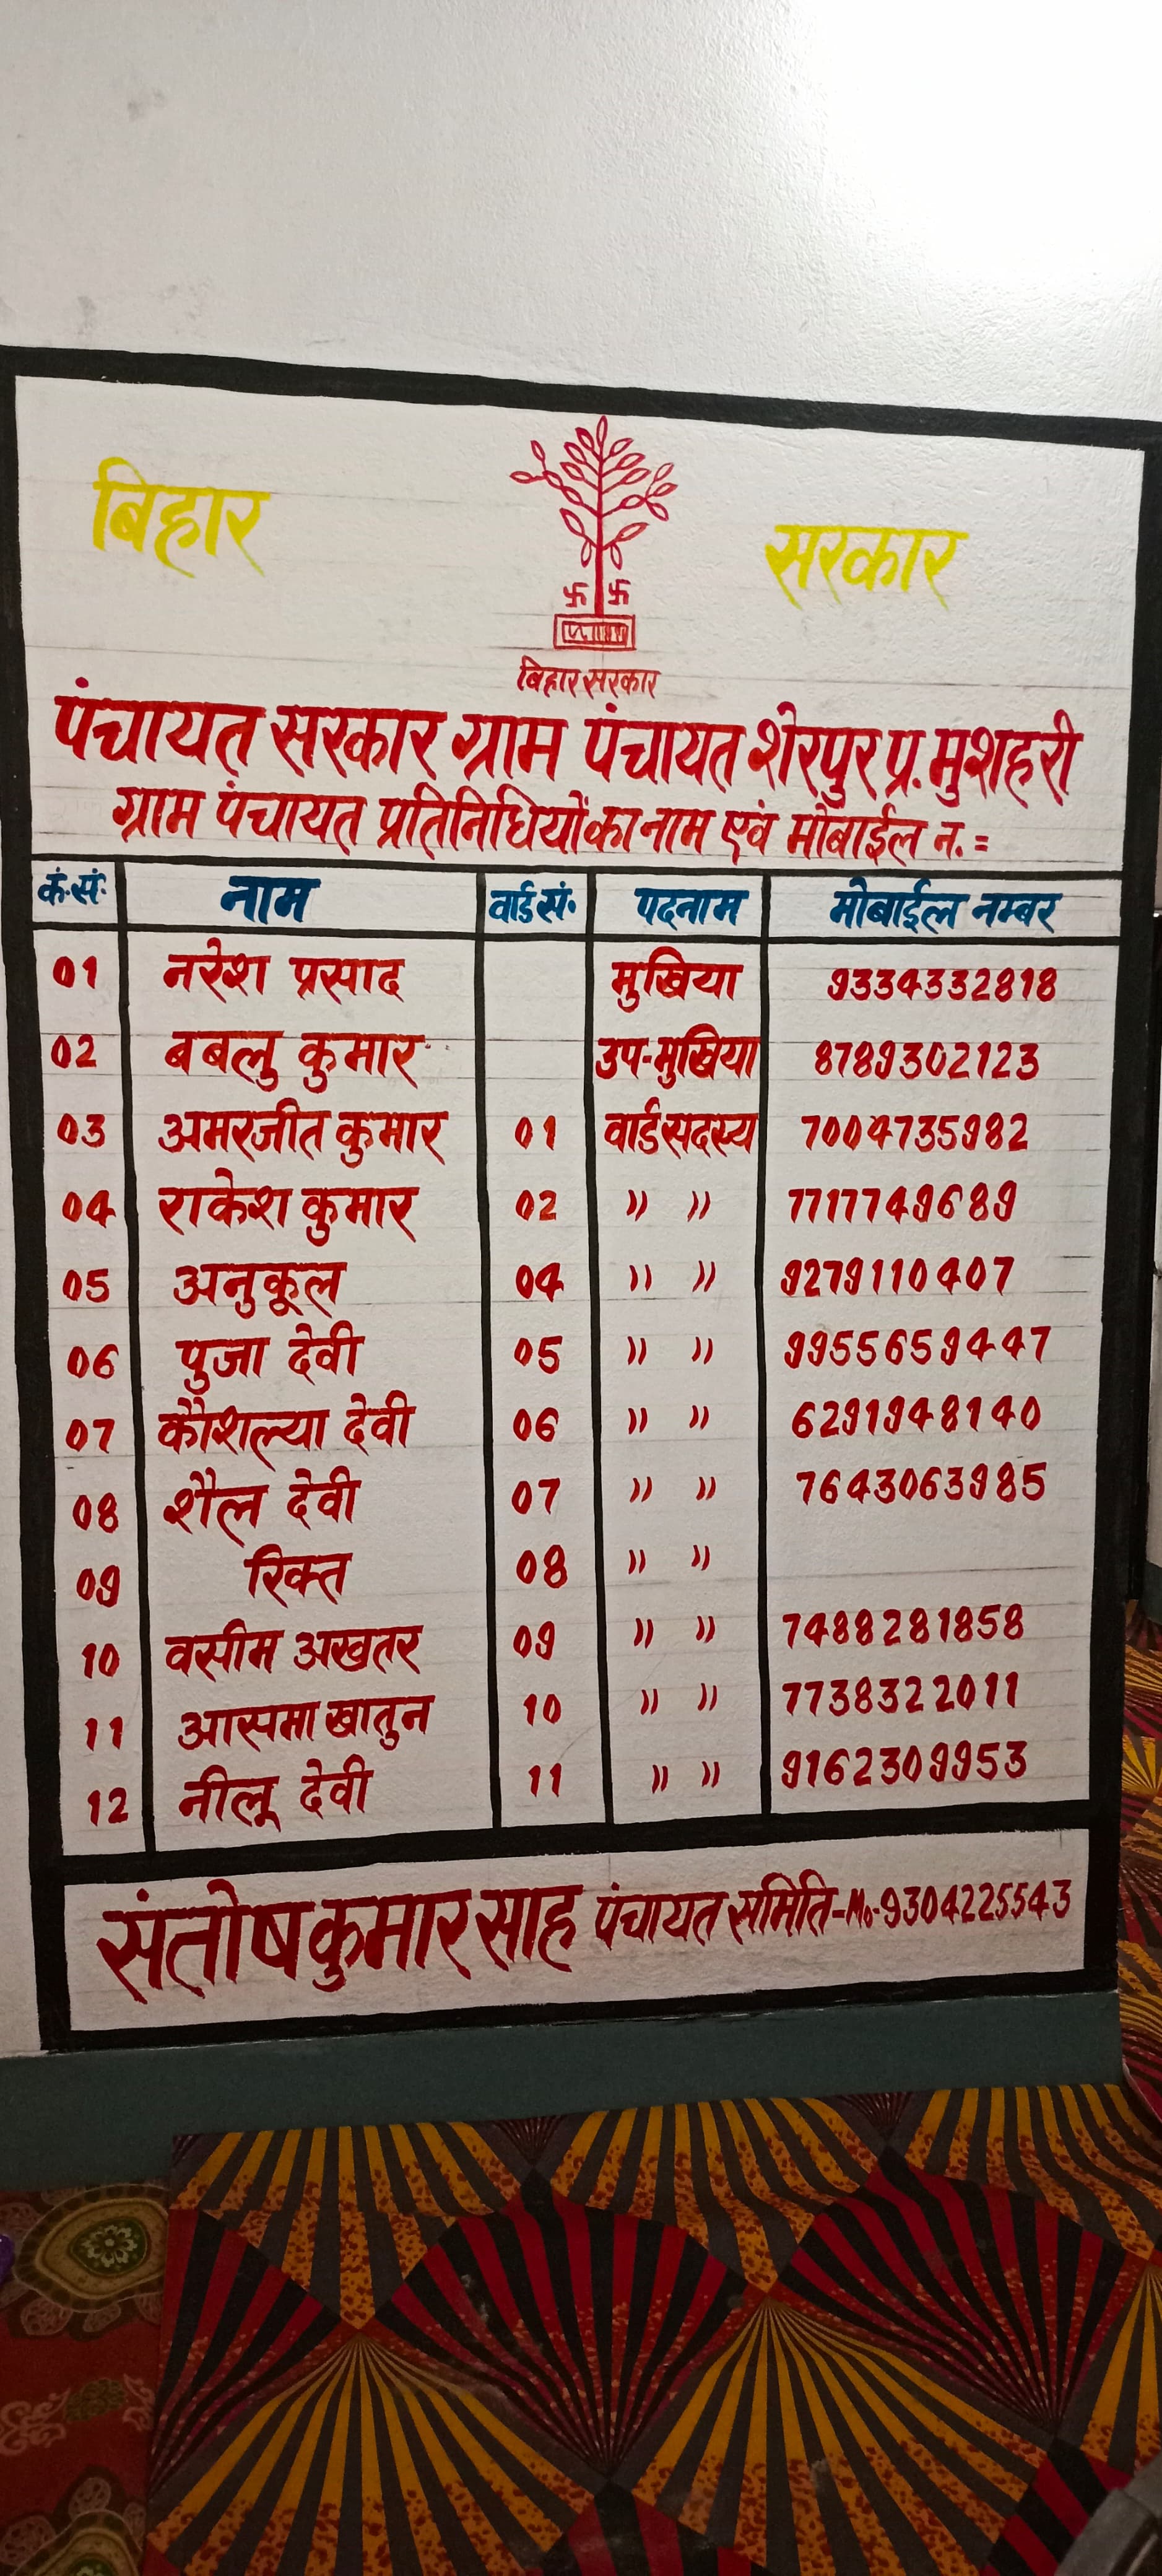 बिहार सरकार
बिहार सरकार
पंचायत सरकार ग्राम पंचायत शेरपुर प्र. मुशहरी
ग्राम पंचायत प्रतिनिधियों का नाम एवं मोबाईल न. =
कं.सं. नाम वार्ड सं. पदनाम मोबाईल नम्बर
01 नरेश प्रसाद मुखिया 9334332818
02 बबलु कुमार उप-मुखिया 8789302123
03 अमरजीत कुमार 01 वार्ड सदस्य 7004735982
04 राकेश कुमार 02 " " 7717749689
05 अनुकूल 04 " " 9279110407
06 पुजा देवी 05 " " 9955659447
07 कौशल्या देवी 06 " " 6291948140
08 शैल देवी 07 " " 7643063985
09 रिक्त 08 " "
10 वसीम अखतर 09 " " 7488281858
11 आसमा खातुन 10 " " 7738322011
12 नीलू देवी 11 " " 9162309953
संतोष कुमार साह पंचायत समिति-Mo-9304225543